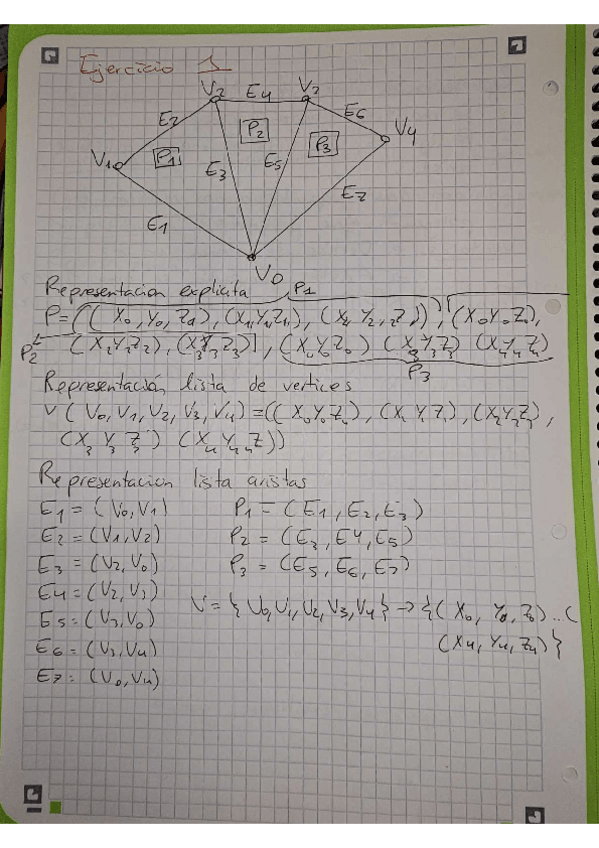 Ejercicio 1
V2 E4 V3
E2 E6
P2 P3 V4
V1 P1 E3 E5
E7
E1
V0
Representacion explicita P1
P=(( X0, Y0, Z0), (X1 Y1 Z1), (X2 Y2, Z2)), (X0 Y0 Z0),
P2 (X2 Y2 Z2), (X3 Y3 Z3)), (X0 Y0 Z0) (X3 Y3 Z3) (X4 Y4 Z4)
P3
Representación lista de vertices
V ( V0, V1, V2, V3, V4) = ((X0 Y0 Z0), (X1 Y1 Z1), (X2 Y2 Z2),
(X3 Y3 Z3) (X4 Y4 Z))
Representacion lista aristas
E1 = (V0, V1) P1 = (E1, E2, E3)
E2 = (V1, V2) P2 = (E3, E4, E5)
E3 = (V2, V0) P3 = (E5, E6, E7)
E4 = (V2, V3) V = { V0, V1, V2, V3, V4 } → {( X0, Y0, Z0) .. (
E5 = (V3, V0) (X4, Y4, Z4) }
E6 = (V3, V4)
E7 = (V0, V4)